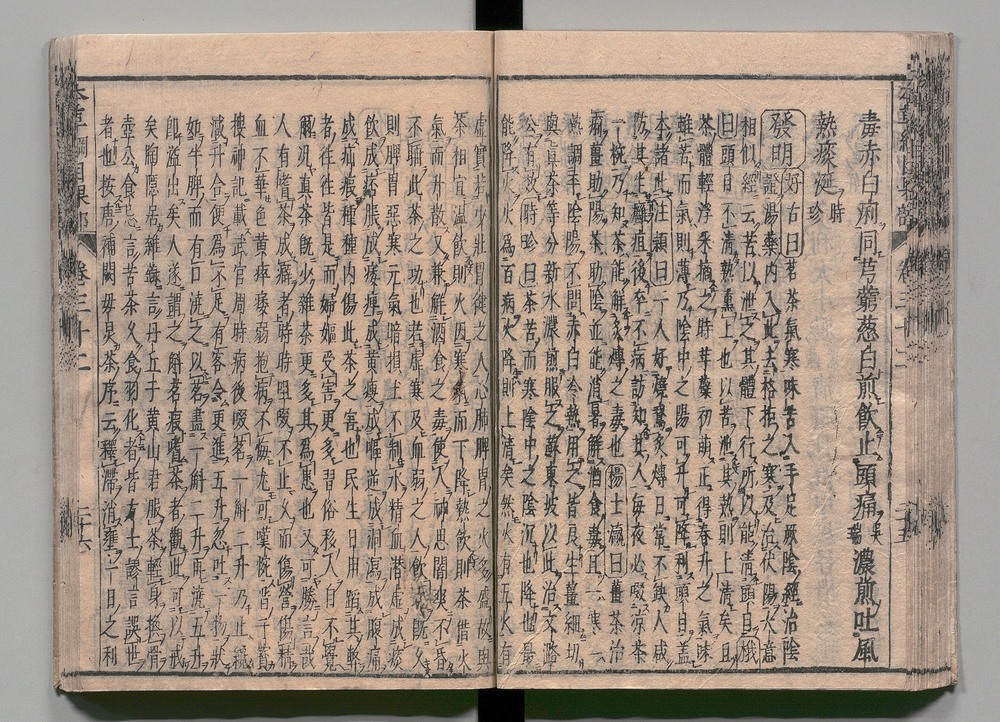 毒赤白痢同芎藭葱白煎飲止頭痛吳瑞濃煎吐風
熱痰涎時珍
發明好古曰茗茶氣寒味苦入手足厥陰經治陰
證湯藥內入此去格拒之寒及治伏陽大意
相似經云苦以泄之其體下行所以能清頭目機
曰頭目不清熱熏上也以苦泄其熱則上清矣且
茶體輕浮采摘之時芽蘗初萌正得春升之氣味
雖苦而氣則薄乃陰中之陽可升可降利頭目蓋
本諸此汪穎曰一人好燒鵝炙煿日常不缺人咸
防其生癰疽後卒不病訪知其人每夜必啜涼茶
一椀乃知茶能解炙煿之毒也楊士瀛曰薑茶治
痢薑助陽茶助陰並能消暑解酒食毒且一寒一
熱調平陰陽不問赤白冷熱用之皆良生薑細切
與真茶等分新水濃煎服之蘇東坡以此治文潞
公有效時珍曰茶苦而寒陰中之陰沉也降也最
能降火火為百病火降則上清矣然火有五火有
虛實若少壯胃健之人心肺脾胃之火多盛故與
茶相宜溫飲則火因寒氣而下降熱飲則茶借火
氣而升散又兼解酒食之毒使人神思闓爽不昏
不睡此茶之功也若虛寒及血弱之人飲之既久
則脾胃惡寒元氣暗損土不制水精血潛虛成痰
飲成痞脹成痿痺成黃瘦成嘔逆成洞瀉成腹痛
成疝瘕種種內傷此茶之害也民生日用蹈其弊
者往往皆是而婦嫗受害更多習俗移人自不覺
爾況真茶既少雜茶更多其為患也又可勝言哉
人有嗜茶成癖者時時咀啜不止久而傷營傷精
血不華色黃瘁痿弱抱病不悔尤可嘆惋晉干寶
搜神記載武官周時病後啜茗一斛二升乃止纔
減升合便為不足有客令更進五升忽吐一物狀
如牛脾而有口澆之以茗盡一斛二升再澆五升
即溢出矣人遂謂之斛茗瘕嗜茶者觀此可以戒
矣陶隱居雜錄言丹丘子黃山君服茶輕身換骨
壺公食忌言苦茶久食羽化者皆方士謬言誤世
者也按唐補闕毋炅茶序云釋滯消壅一日之利
本草綱目果部 卷三十二 二十六